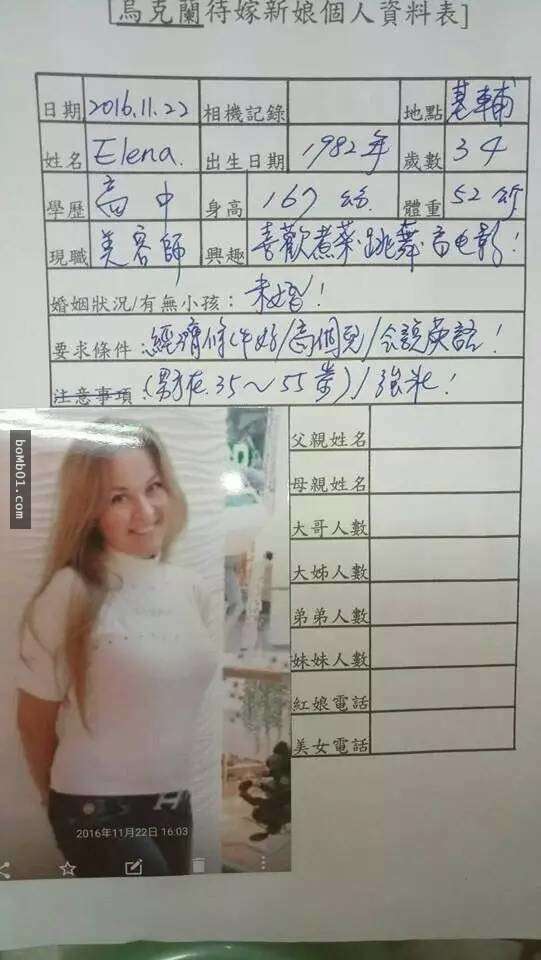 [烏克蘭待嫁新娘個人資料表]
日期 2016.11.22 相機記錄 地點 基輔
姓名 Elena. 出生日期 1982年 歲數 34
學歷 高中 身高 167 公分 體重 52 公斤
現職 美容師 興趣 喜歡煮菜、跳舞、看电影!
婚姻狀況/有無小孩: 未婚!
要求條件: 經濟條件好/高個兒/会說英語!
注意事項: (男方在 35~55歲)/強壯!
父親姓名
母親姓名
大哥人數
大姊人數
弟弟人數
妹妹人數
紅娘電話
美女電話
boMb01.com
2016年11月22日 16:03